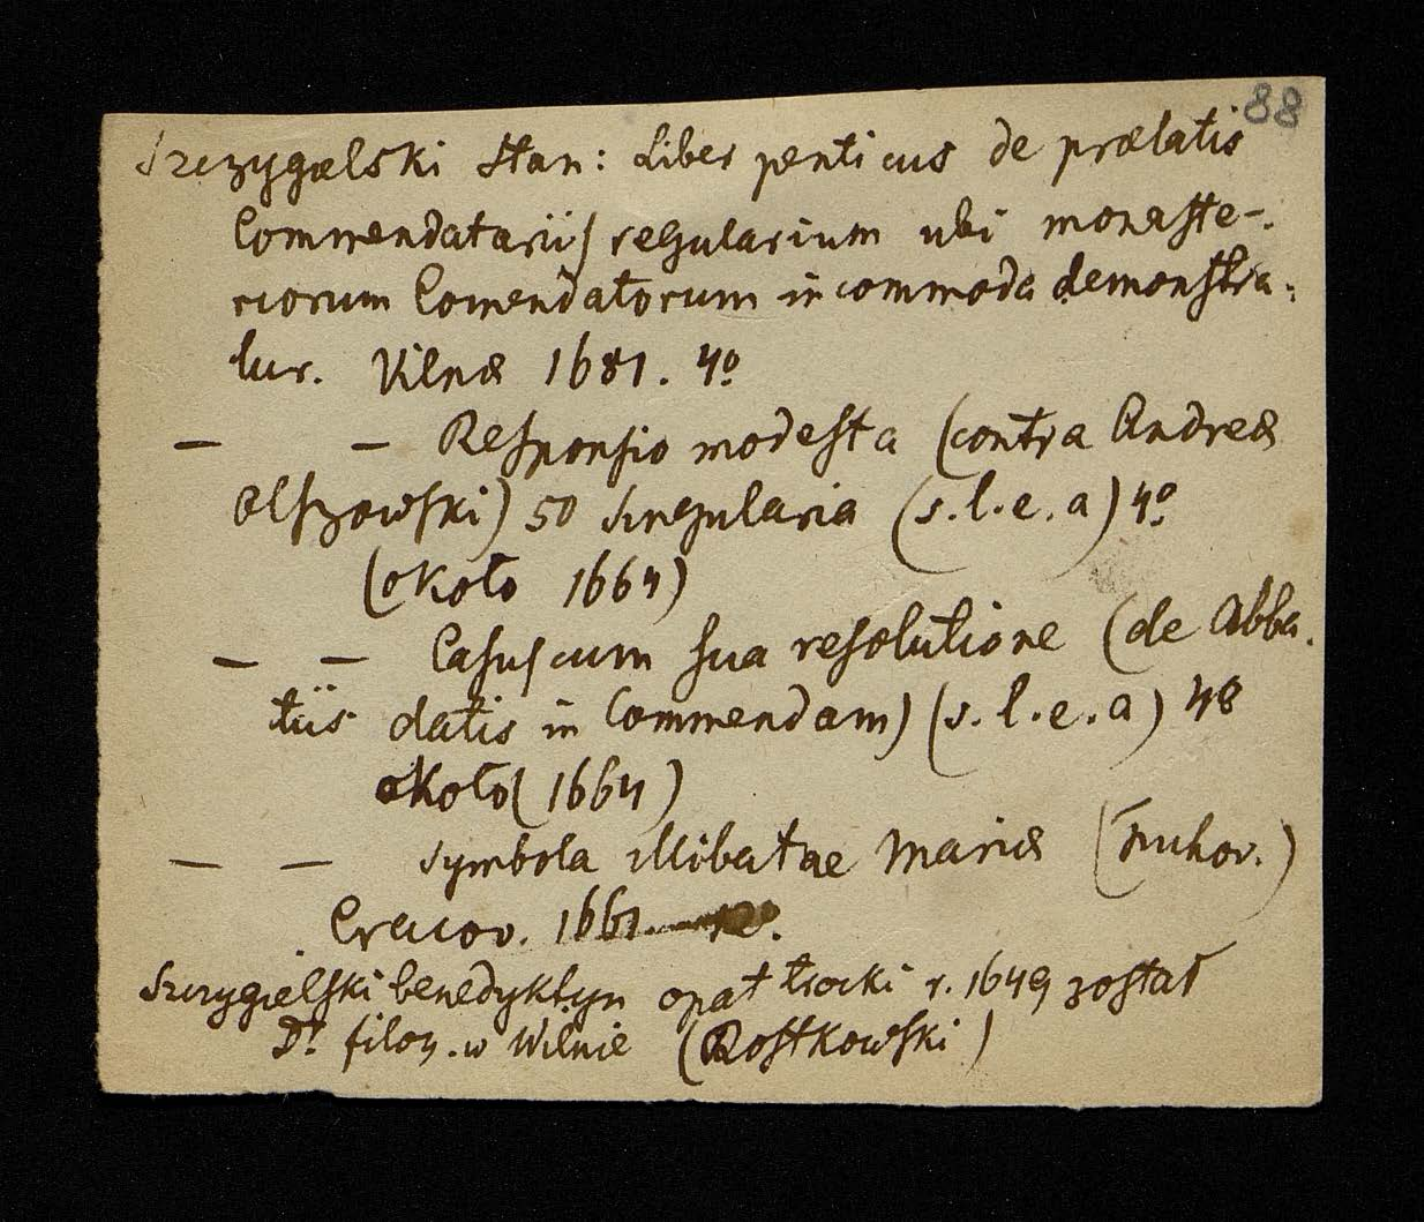 88
Szczygielski Stan: Liber penticus de prælatis
Commendatariis regularium ubi monaste-
riorum Comendatorum incommoda demonstra-
tur. Vilnæ 1681. 4º
— — Responsio modesta (contra Andreæ
Olszowski) 50 singularia (s.l.e.a) 4º
(około 1664)
— — Casus cum sua resolutione (de Abba-
tiis datis in Commendam) (s.l.e.a) 48
około (1664)
— — Symbola illibatae Mariæ
Cracov. 1661. 12º.
Szczygielski benedyktyn opat trocki r. 1649 został
Dr filoz. w Wilnie (Rostkowski)